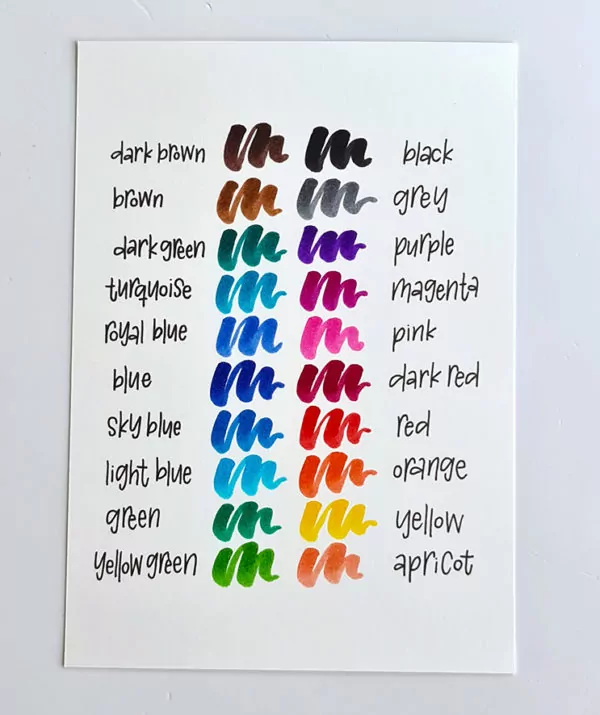 dark brown black
brown grey
dark green purple
turquoise magenta
royal blue pink
blue dark red
sky blue red
light blue orange
green yellow
yellow green apricot